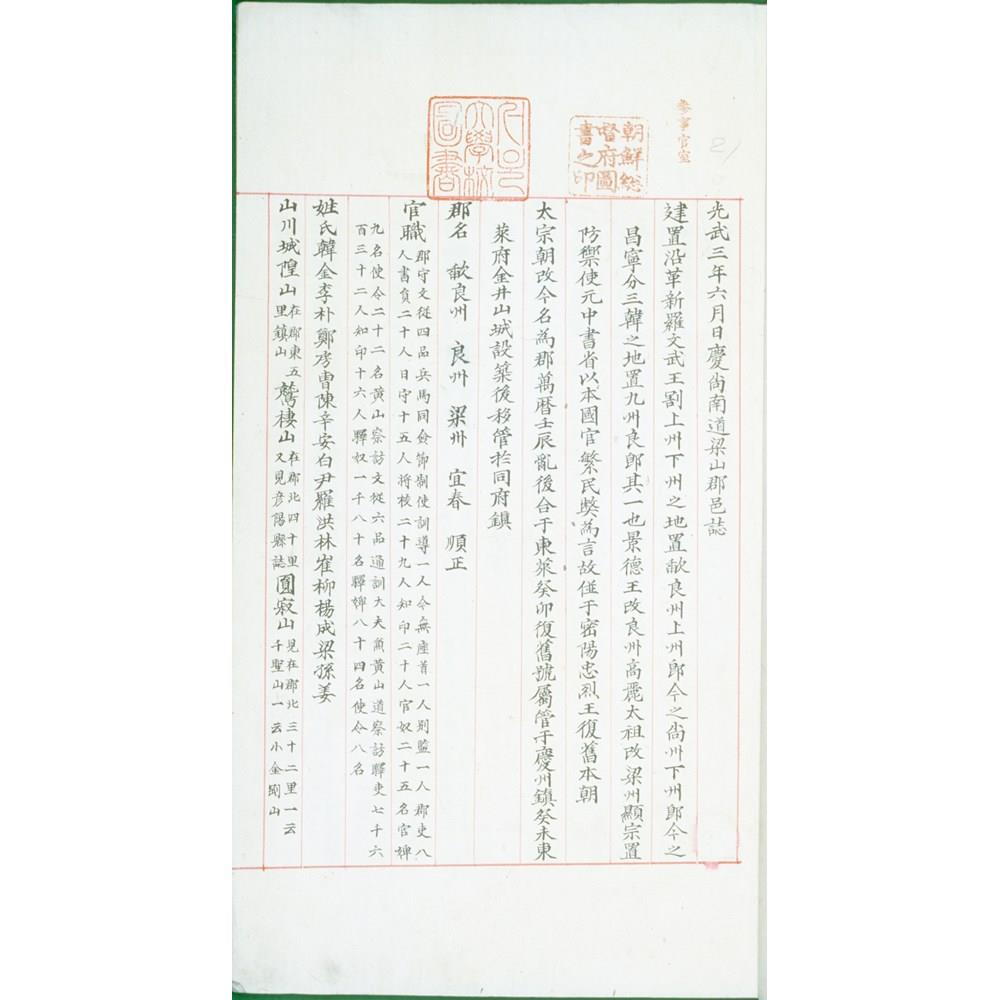 參事官室
朝鮮総
督府圖
書之印
서울
大學校
圖書
光武三年六月日慶尙南道梁山郡邑誌
建置沿革新羅文武王割上州下州之地置歃良州上州郎今之尙州下州郎今之
昌寧分三韓之地置九州良郎其一也景德王改良州高麗太祖改梁州顯宗置
防禦使元中書省以本國官繁民獘爲言故倂于密陽忠烈王復舊本朝
太宗朝改今名爲郡萬曆壬辰亂後合于東萊癸卯復舊號屬管于慶州鎮癸未東
萊府金井山城設築後移管於同府鎮
郡名 歃良州 良州 梁州 宜春 順正
官職 郡守文從四品兵馬同僉節制使訓導一人今無座首一人別監一人郡吏八
人書負二十人日守十五人將校二十九人知印二十人官奴二十五名官婢
九名使令二十二名黃山察訪文從六品通訓大夫兼黃山道察訪驛吏七千六
百三十二人知印十六人驛奴一千八十名驛婢八十四名使令八名
姓氏韓金李朴鄭房曺陳辛安白尹羅洪林崔柳楊成梁孫姜
山川城隍山在郡東五里鎮山鷲棲山在郡北四十里又見彦陽縣誌圓寂山見在郡北三十二里一云千聖山一云小金剛山